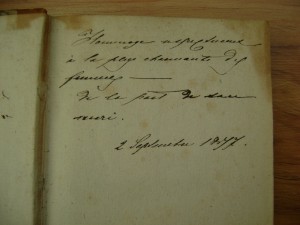 Hommage respectueux
à la plus charmante des
femmes —
de la part de
mari.
2 Septembre 1877.